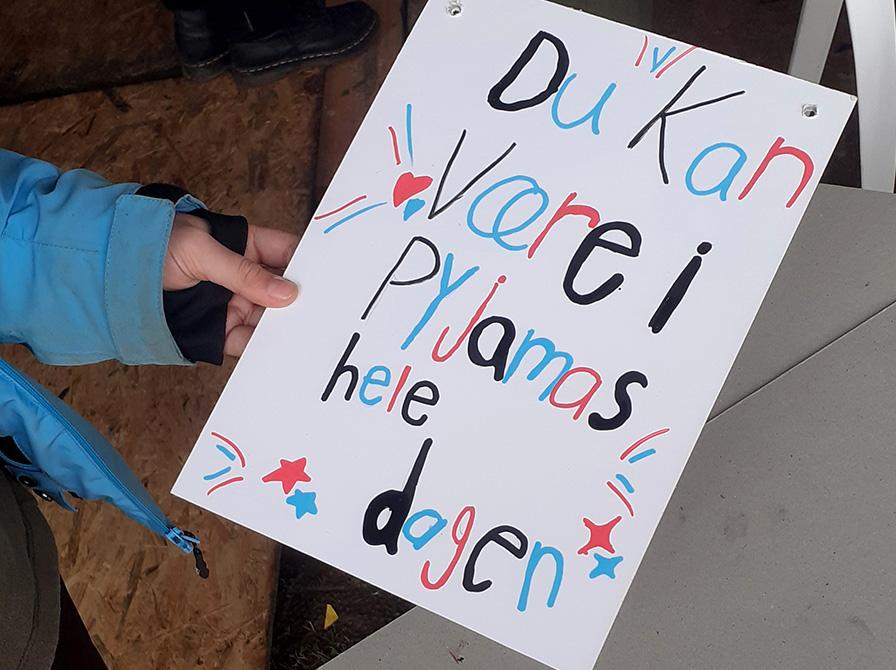 Du Kan
Være i
Pyjamas
hele
dagen